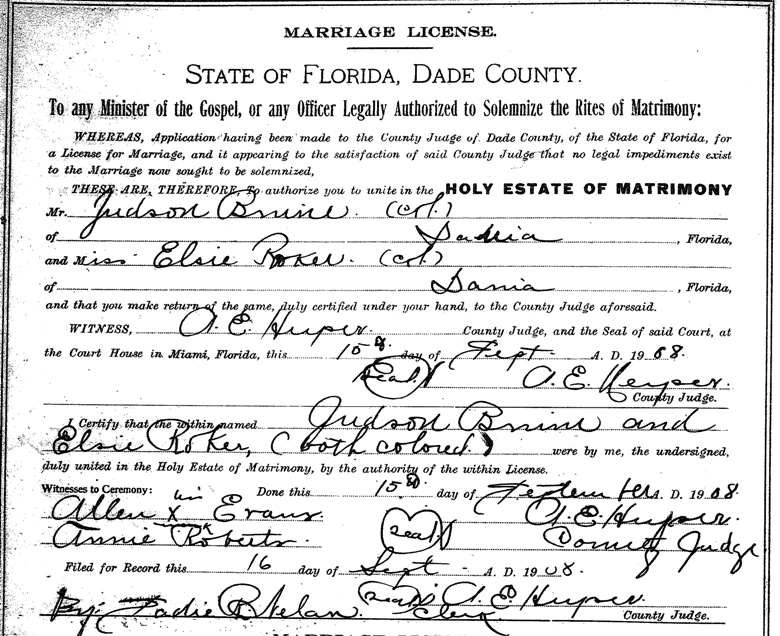 MARRIAGE LICENSE.
STATE OF FLORIDA, DADE COUNTY.
To any Minister of the Gospel, or any Officer Legally Authorized to Solemnize the Rites of Matrimony:
WHEREAS, Application having been made to the County Judge of Dade County, of the State of Florida, for
a License for Marriage, and it appearing to the satisfaction of said County Judge that no legal impediments exist
to the Marriage now sought to be solemnized,
THESE ARE, THEREFORE, To authorize you to unite in the HOLY ESTATE OF MATRIMONY
Mr. Judson (Col.)
of Dania, Florida,
and Miss Elsie Roker. (Col.)
of Dania, Florida,
and that you make return of the same, duly certified under your hand, to the County Judge aforesaid.
WITNESS, A. E. Heyser. County Judge, and the Seal of said Court, at
the Court House in Miami, Florida, this 15 day of Sept A. D. 1908.
(Seal) A. E. Heyser.
County Judge.
I Certify that the within named Judson and
Elsie Roker, (both colored) were by me, the undersigned,
duly united in the Holy Estate of Matrimony, by the authority of the within License.
Witnesses to Ceremony: Done this 15 day of September A. D. 1908.
Allen x Evans A. E. Heyser.
Annie Roberts. (seal) County Judge
Filed for Record this 16 day of Sept - A. D. 1908.
By: (Seal) A. E. Heyser. County Judge.
Clerk